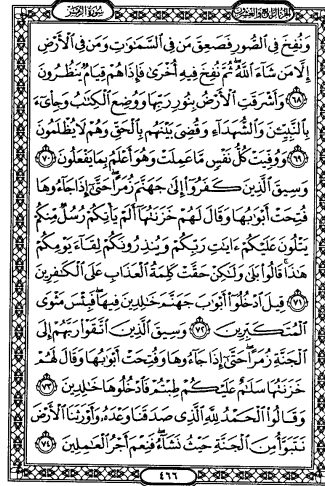 الجزء الرابع والعشرون
سورة الزمر
وَنُفِخَ فِي الصُّورِ فَصَعِقَ مَن فِي السَّمَٰوَٰتِ وَمَن فِي الْأَرْضِ
إِلَّا مَن شَاءَ اللَّهُ ثُمَّ نُفِخَ فِيهِ أُخْرَىٰ فَإِذَا هُمْ قِيَامٌ يَنظُرُونَ
﴿٦٨﴾ وَأَشْرَقَتِ الْأَرْضُ بِنُورِ رَبِّهَا وَوُضِعَ الْكِتَٰبُ وَجِاْيٓءَ
بِالنَّبِيِّـۧنَ وَالشُّهَدَاءِ وَقُضِيَ بَيْنَهُم بِالْحَقِّ وَهُمْ لَا يُظْلَمُونَ
﴿٦٩﴾ وَوُفِّيَتْ كُلُّ نَفْسٍ مَّا عَمِلَتْ وَهُوَ أَعْلَمُ بِمَا يَفْعَلُونَ ﴿٧٠﴾
وَسِيقَ الَّذِينَ كَفَرُوا إِلَىٰ جَهَنَّمَ زُمَرًا حَتَّىٰ إِذَا جَاءُوهَا
فُتِحَتْ أَبْوَٰبُهَا وَقَالَ لَهُمْ خَزَنَتُهَا أَلَمْ يَأْتِكُمْ رُسُلٌ مِّنكُمْ
يَتْلُونَ عَلَيْكُمْ ءَايَٰتِ رَبِّكُمْ وَيُنذِرُونَكُمْ لِقَاءَ يَوْمِكُمْ
هَٰذَا قَالُوا بَلَىٰ وَلَٰكِنْ حَقَّتْ كَلِمَةُ الْعَذَابِ عَلَى الْكَٰفِرِينَ
﴿٧١﴾ قِيلَ ادْخُلُوا أَبْوَٰبَ جَهَنَّمَ خَٰلِدِينَ فِيهَا فَبِئْسَ مَثْوَى
الْمُتَكَبِّرِينَ ﴿٧٢﴾ وَسِيقَ الَّذِينَ اتَّقَوْا رَبَّهُمْ إِلَى
الْجَنَّةِ زُمَرًا حَتَّىٰ إِذَا جَاءُوهَا وَفُتِحَتْ أَبْوَٰبُهَا وَقَالَ لَهُمْ
خَزَنَتُهَا سَلَٰمٌ عَلَيْكُمْ طِبْتُمْ فَادْخُلُوهَا خَٰلِدِينَ ﴿٧٣﴾
وَقَالُوا الْحَمْدُ لِلَّهِ الَّذِي صَدَقَنَا وَعْدَهُ وَأَوْرَثَنَا الْأَرْضَ
نَتَبَوَّأُ مِنَ الْجَنَّةِ حَيْثُ نَشَاءُ فَنِعْمَ أَجْرُ الْعَٰمِلِينَ ﴿٧٤﴾
٤٦٦